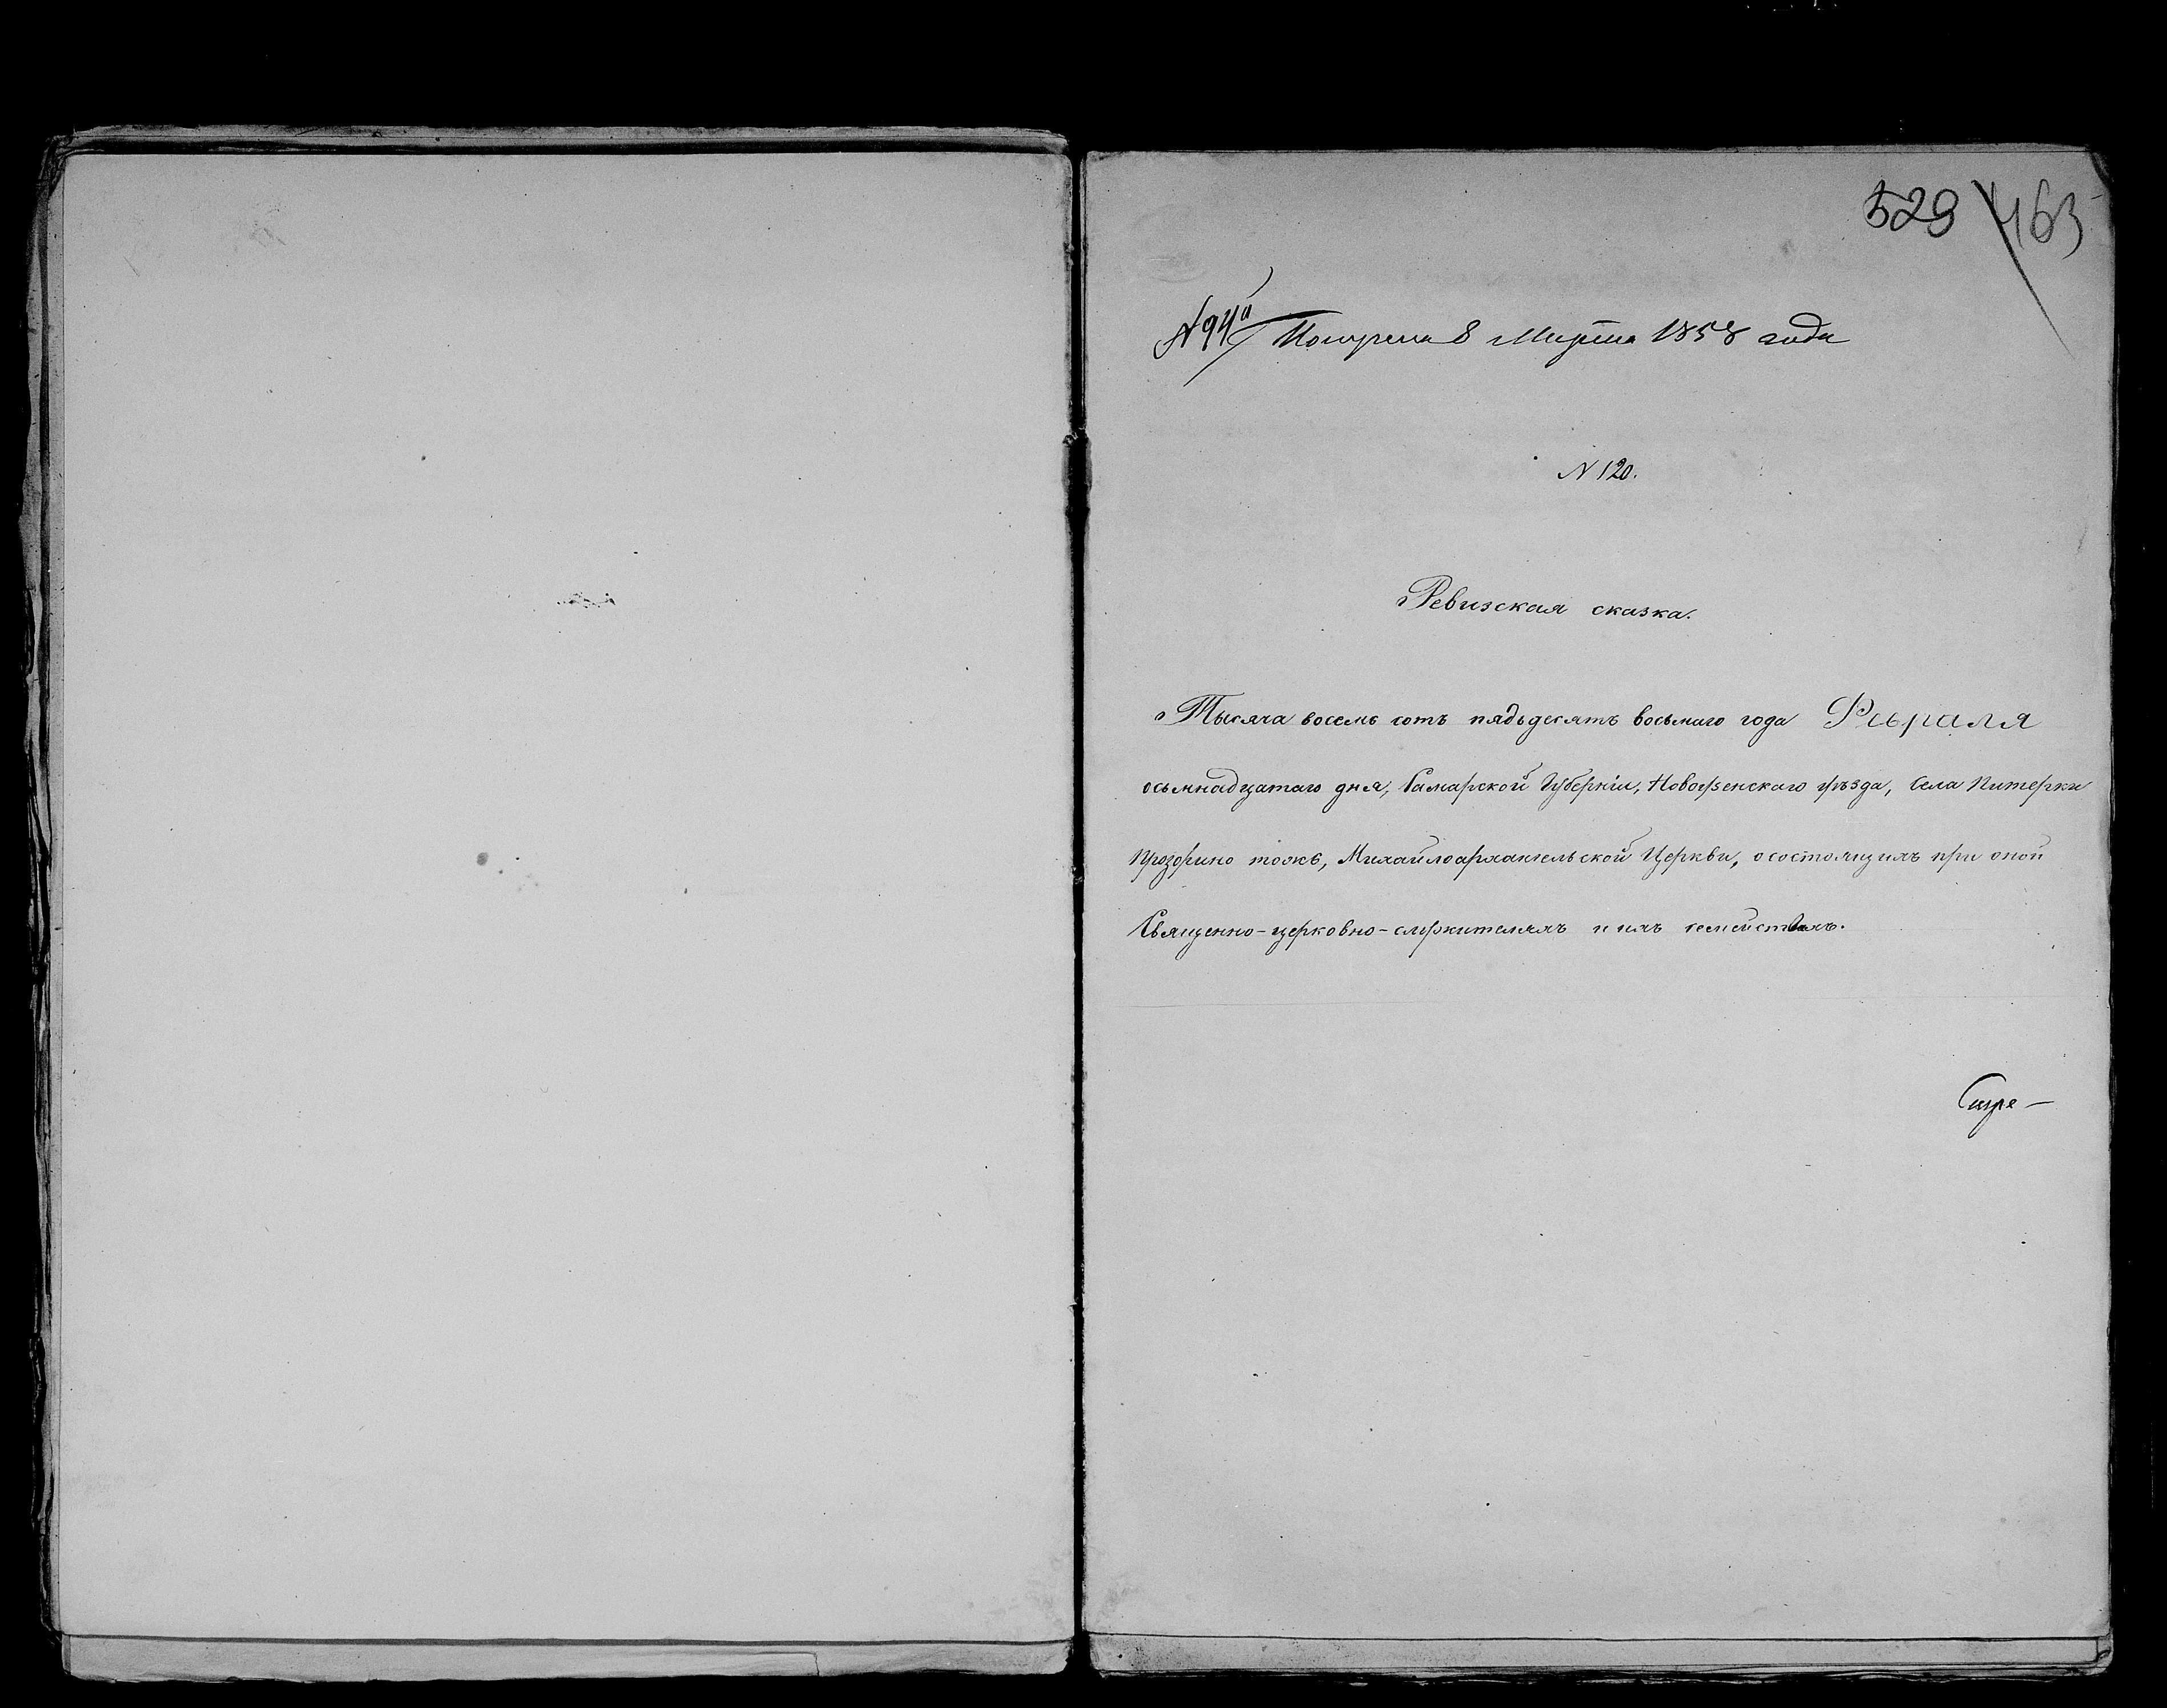 529 463
N 94 Получена 8 Марта 1858 года
N 120.
Ревизская сказка.
Тысяча восемь сотъ пядьдесятъ восьмаго года Февраля
осьмнадцатаго дня, Самарской Губерніи, Новоузенскаго уѣзда, села Питерки
Прозорино тожъ, Михайлоархангельской Церкви, о состоящихъ при оной
Священно-церковно-служителяхъ и ихъ семействахъ.